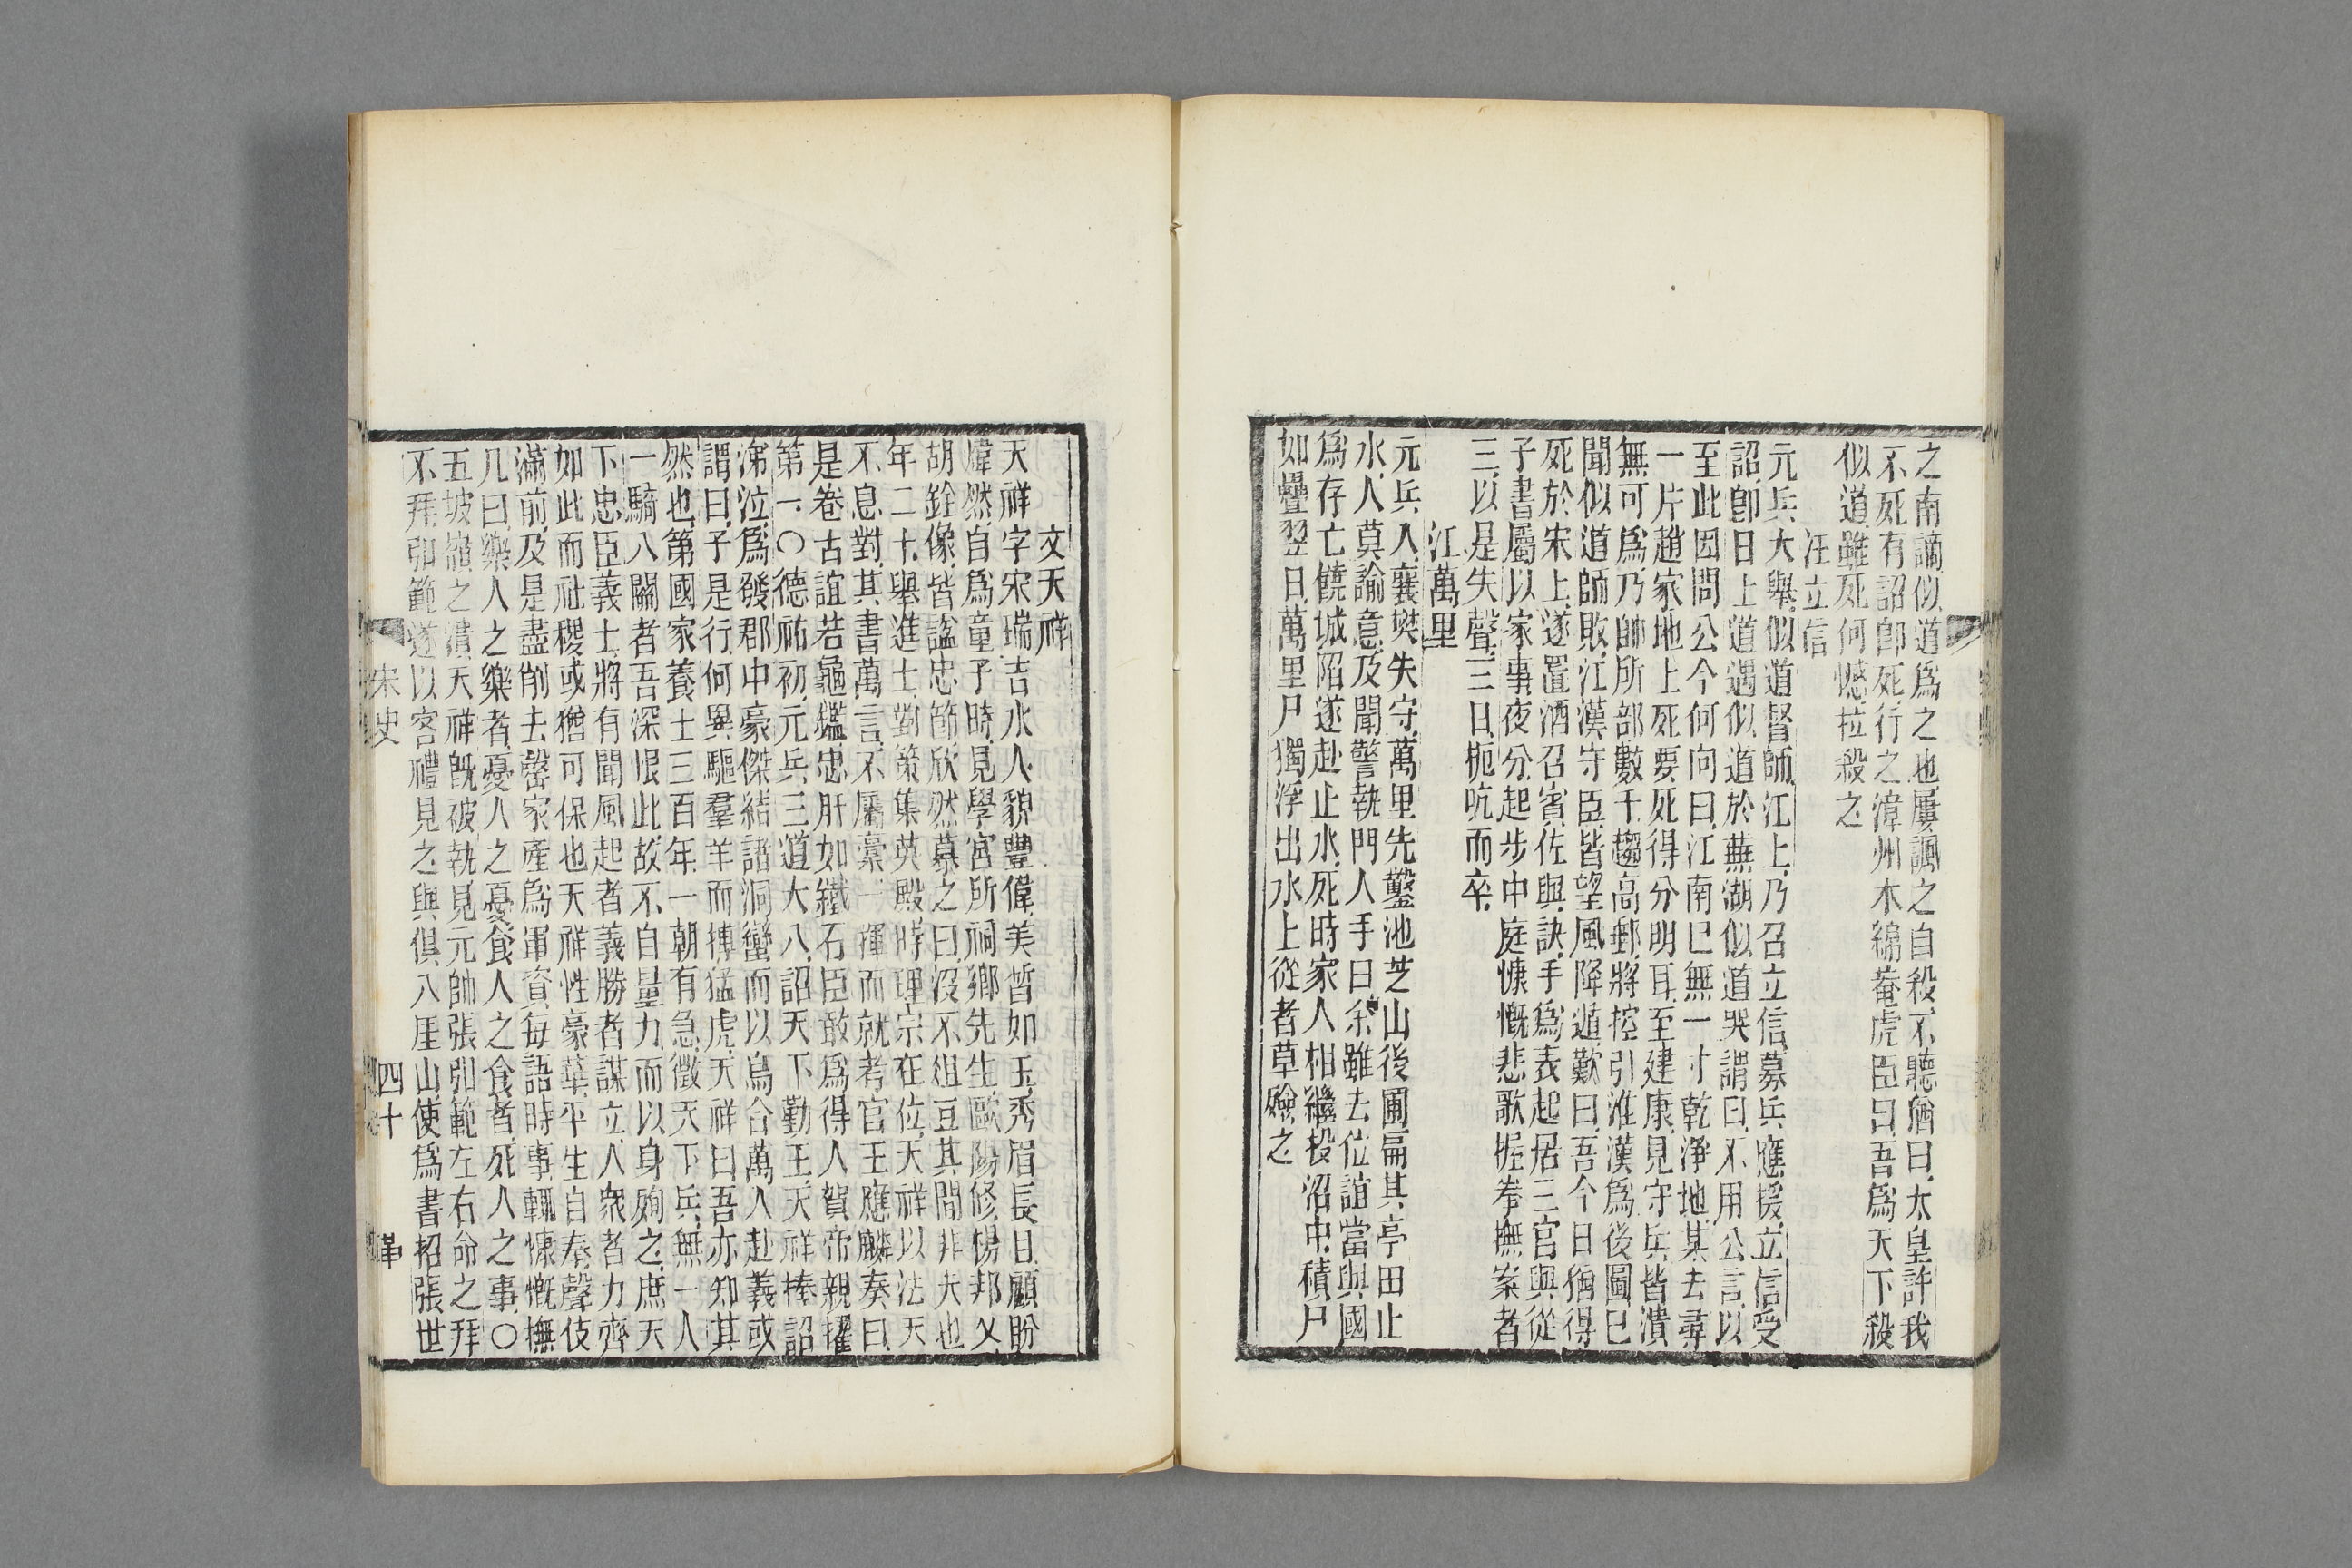 之南謫似道爲之也屢諷之自殺不聽猶曰太皇許我
不死有詔卽死行之漳州木綿菴虎臣曰吾爲天下殺
似道雖死何憾拉殺之
汪立信
元兵大舉似道督師江上乃召立信募兵應援立信受
詔卽日上道遇似道於蕪湖似道哭謂曰不用公言以
至此因問公今何向曰江南已無一寸乾淨地某去尋
一片趙家地上死要死得分明耳至建康見守兵皆潰
無可爲乃帥所部數千趨高郵將控引淮漢爲後圖已
聞似道師敗江漢守臣皆望風降遁歎曰吾今日猶得
死於宋上遂置酒召賓佐與訣手爲表起居三宮與從
子書屬以家事夜分起步中庭慷慨悲歌握拳撫案者
三以是失聲三日扼吭而卒
江萬里
元兵入襄樊失守萬里先鑿池芝山後圃扁其亭田止
水人莫諭意及聞警執門人手曰余雖去位誼當與國
爲存亡饒城陷遂赴止水死時家人相繼投沼中積尸
如疊翌日萬里尸獨浮出水上從者草殮之
文天祥
天祥字宋瑞吉水人貌豐偉美晳如玉秀眉長目顧盼
煒然自爲童子時見學宮所祠鄉先生歐陽修楊邦乂
胡銓像皆諡忠節欣然慕之曰沒不俎豆其間非夫也
年二十舉進士對策集英殿時理宗在位天祥以法天
不息對其書萬言不屬稾一揮而就考官王應麟奏曰
是卷古誼若龜鑑忠肝如鐵石臣敢爲得人賀帝親擢
第一〇德祐初元兵三道大入詔天下勤王天祥捧詔
涕泣爲發郡中豪傑結諸洞蠻而以烏合萬人赴義或
謂曰子是行何異驅羣羊而搏猛虎天祥曰吾亦知其
然也第國家養士三百年一朝有急徵天下兵無一人
一騎入關者吾深恨此故不自量力而以身殉之庶天
下忠臣義士將有聞風起者義勝者謀立人衆者力齊
如此而社稷或猶可保也天祥性豪華平生自奉聲伎
滿前及是盡削去罄家產爲軍資每語時事輒慷慨撫
几曰樂人之樂者憂人之憂食人之食者死人之事〇
五坡嶺之潰天祥旣被執見元帥張弘範左右命之拜
不拜弘範遂以客禮見之與俱入厓山使爲書招張世
宋史 四十 革